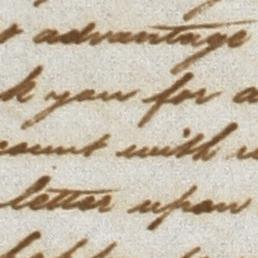 advantage
you for
count with
letter upon